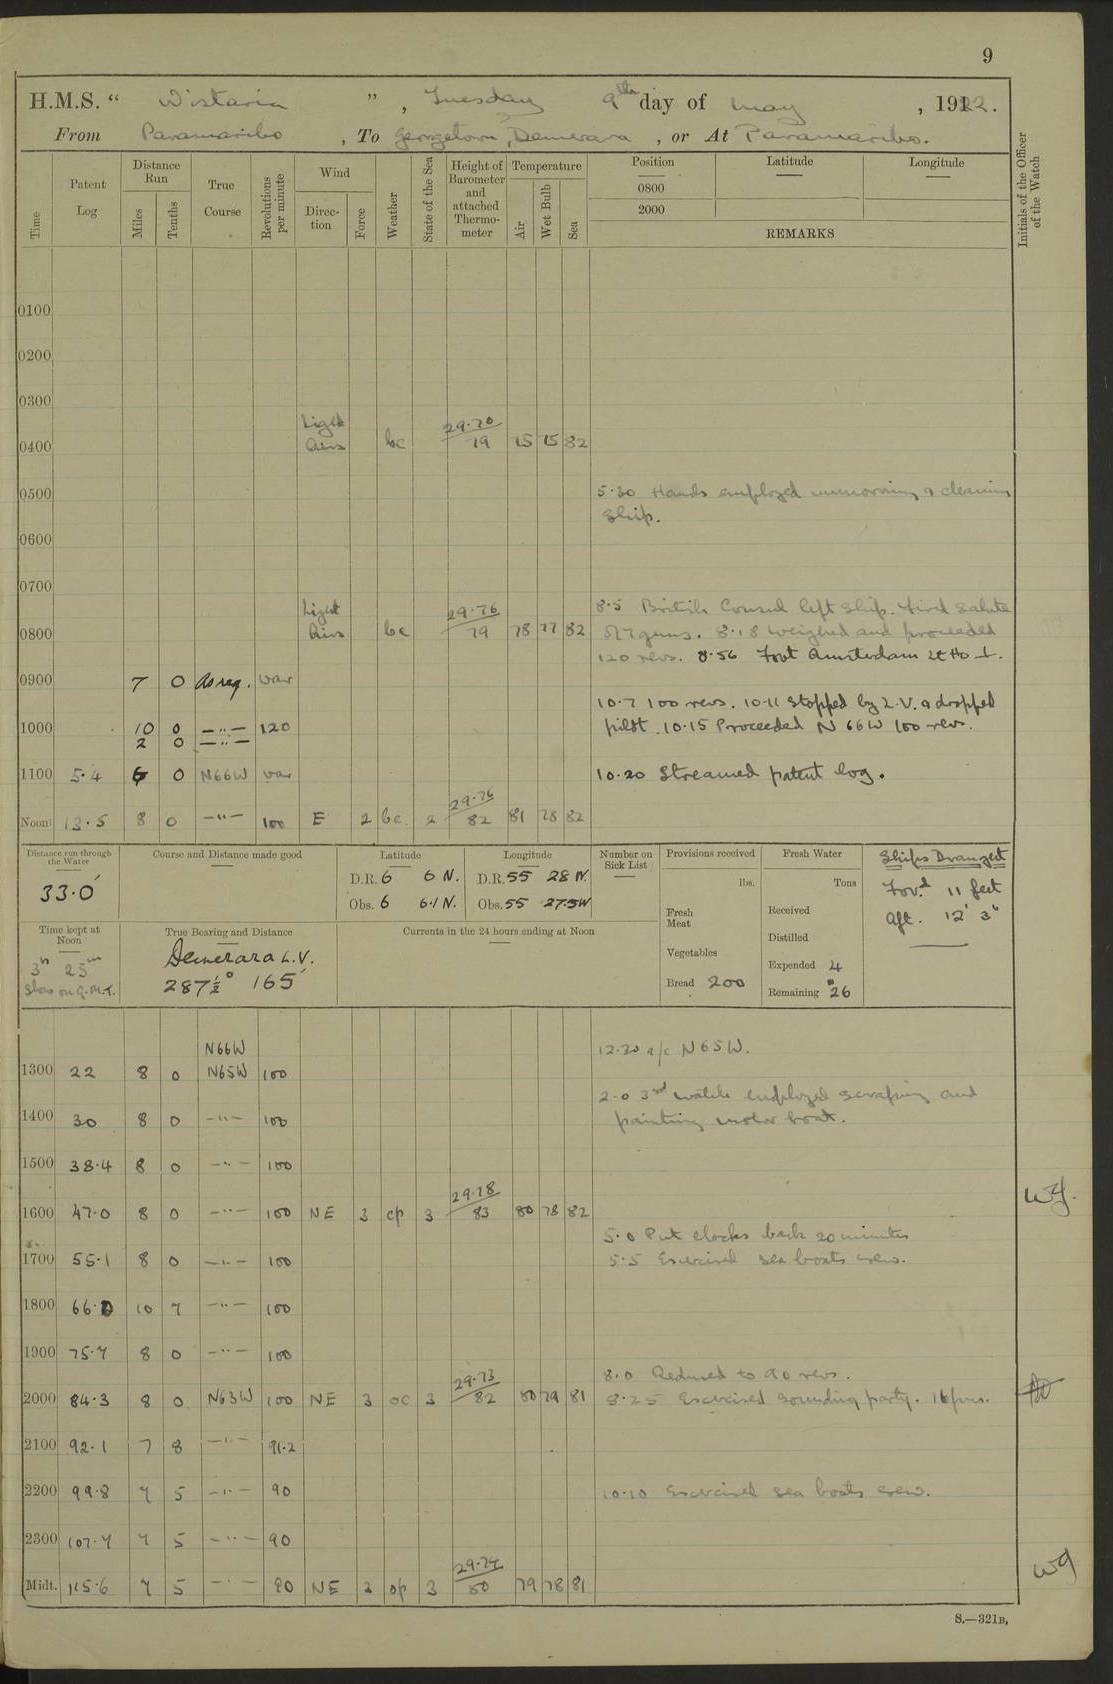 9
H.M.S. “ Wistaria ” , Tuesday 9th day of May , 1922.
From Paramaribo , To Georgetown, Demerara , or At Paramaribo.
Time Patent Log Distance Run Miles Tenths True Course Revolutions per minute Wind Direction Force Weather State of the Sea Height of Barometer and attached Thermometer Temperature Air Wet Bulb Sea Position Latitude Longitude Initials of the Officer of the Watch
0800
2000
REMARKS
0100
0200
0300
0400 Light Airs bc 29.70 79 75 75 82
0500 5.30 Hands employed unmooring & cleaning
ship.
0600
0700
8.5 British Consul left ship. Fired salute
0800 Light Airs bc 29.76 79 78 77 82 of 7 guns. 8.18 Weighed and proceeded
120 revs. 8.56 Fort Amsterdam
0900 7 0 As req. var
10.7 100 revs. 10.11 Stopped by L.V. & dropped
1000 10 0 —"— 120 pilot. 10.15 Proceeded N 66W 100 revs.
2 0 —"—
1100 5.4 6 0 N66W var 10.20 Streamed patent log.
Noon 13.5 8 0 —"— 100 E 2 bc 2 29.76 82 81 78 82
Distance run through the Water
33.0'
Course and Distance made good
Latitude
D.R. 6 6 N.
Obs. 6 6.1 N.
Longitude
D.R. 55 28 W.
Obs. 55 27.5W
Number on Sick List
Provisions received
lbs.
Fresh Meat
Vegetables
Bread 200
Fresh Water
Tons
Received
Distilled
Expended 4
Remaining 26
Ships Draught
For'd 11 feet
Aft. 12' 3"
Time kept at Noon
3h 25m
Slow on G.M.T.
True Bearing and Distance
Demerara L.V.
287½° 165'
Currents in the 24 hours ending at Noon
N66W 12.30 a/c N65W.
1300 22 8 0 N65W 100
2.0 3rd watch employed scraping and
1400 30 8 0 —"— 100 painting motor boat.
1500 38.4 8 0 —"— 100
1600 47.0 8 0 —"— 100 NE 3 cp 3 29.78 83 80 78 82
5.0 Put clocks back 20 minutes
1700 55.1 8 0 —"— 100 5.5 Exercised sea boats crew.
1800 66.0 10 7 —"— 100
1900 75.7 8 0 —"— 100
8.0 Reduced to 90 revs.
2000 84.3 8 0 N63W 100 NE 3 oc 3 29.73 82 80 79 81 8.25 Exercised sounding party.
2100 92.1 7 8 —"— 91.2
2200 99.8 7 5 —"— 90 10.10 Exercised sea boats crew.
2300 107.7 7 5 —"— 90
Midt. 115.6 7 5 —"— 90 NE 3 op 3 29.74 80 79 78 81
S.—321B.